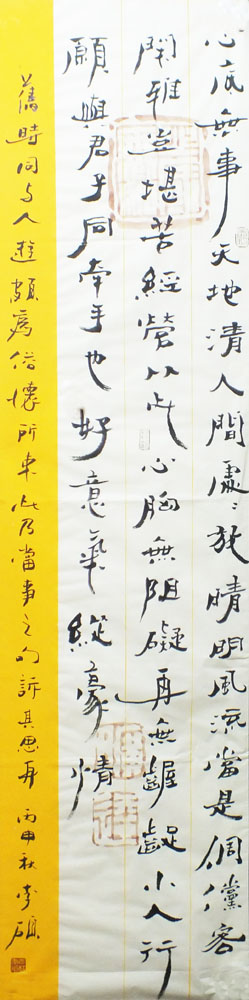 心底無事天地清人間處〻放晴明風流當是倜儻客
閑雅豈堪苦經營從此心胸無阻礙再無齷齪小人行
願與君子同牽手也好意氣縱豪情
舊時同與人遊頗為俗懷所束此乃當事之句訴其思耳 丙申秋 李碩